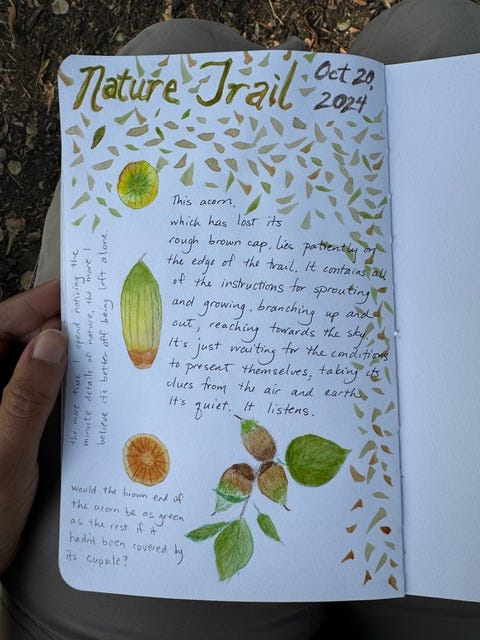 Nature Trail
Oct 20,
2024
This acorn,
which has lost its
rough brown cap, lies patiently on
the edge of the trail. It contains all
of the instructions for sprouting
and growing, branching up and
out, reaching towards the sky.
It's just waiting for the conditions
to present themselves, taking its
clues from the air and earth.
It's quiet. It listens.
the more time I spend noticing the
minute details of nature, the more I
believe it's better off being left alone.
would the brown end of
the acorn be as green
as the rest if it
hadn't been covered by
its cupule?